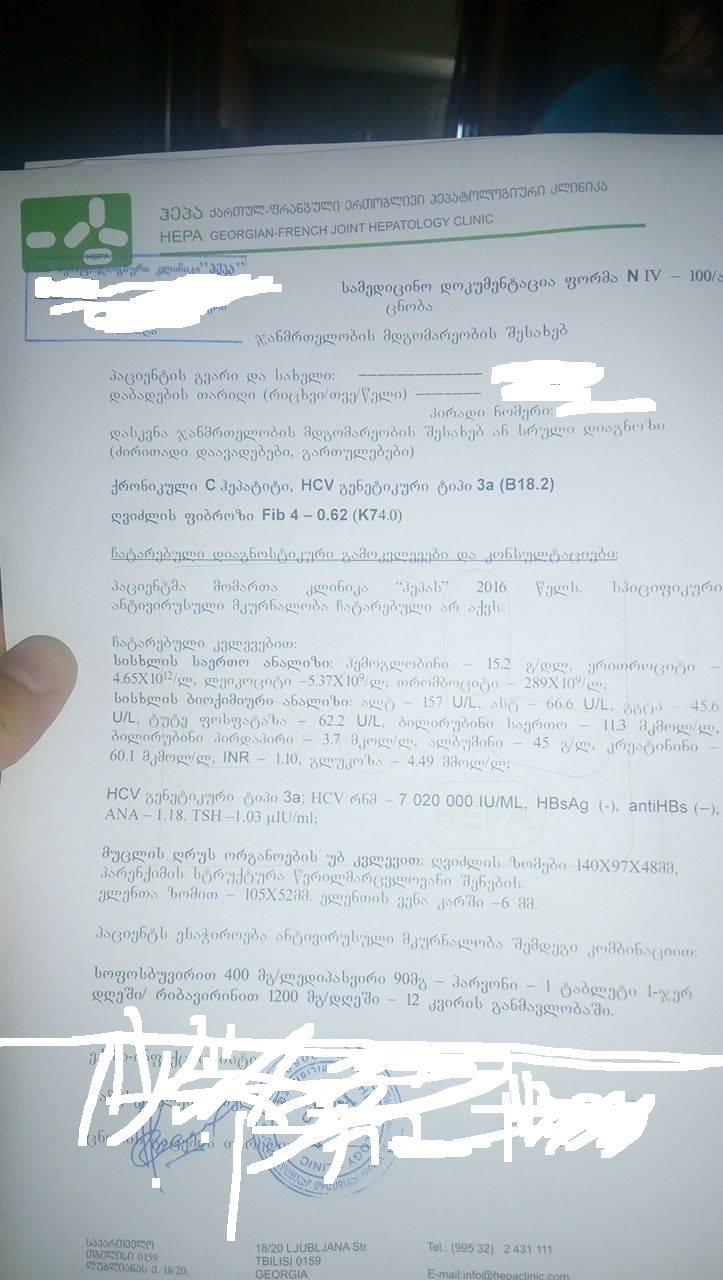 ჰეპა ქართულ-ფრანგული ერთობლივი ჰეპატოლოგიური კლინიკა
HEPA GEORGIAN-FRENCH JOINT HEPATOLOGY CLINIC
HEPA
კლინიკა "ჰეპა"
სამედიცინო დოკუმენტაცია ფორმა N IV – 100/ა
ცნობა
ჯანმრთელობის მდგომარეობის შესახებ
პაციენტის გვარი და სახელი:
დაბადების თარიღი (რიცხვი/თვე/წელი)
პირადი ნომერი:
დასკვნა ჯანმრთელობის მდგომარეობის შესახებ ან სრული დიაგნოზი
(ძირითადი დაავადებები, გართულებები)
ქრონიკული C ჰეპატიტი, HCV გენეტიკური ტიპი 3a (B18.2)
ღვიძლის ფიბროზი Fib 4 – 0.62 (K74.0)
ჩატარებული დიაგნოსტიკური გამოკვლევები და კონსულტაციები:
პაციენტმა მომართა კლინიკა "ჰეპას" 2016 წელს. სპიციფიკური
ანტივირუსული მკურნალობა ჩატარებული არ აქვს.
ჩატარებული კვლევებით:
სისხლის საერთო ანალიზი: ჰემოგლობინი – 15.2 გ/დლ, ერითროციტი –
4.65X10¹²/ლ, ლეიკოციტი –5.37X10⁹/ლ, თრომბოციტი – 289X10⁹/ლ;
სისხლის ბიოქიმიური ანალიზი: ალტ – 157 U/L, ასტ – 66.6 U/L, გგტპ – 45.6
U/L, ტუტე ფოსფატაზა – 62.2 U/L, ბილირუბინი საერთო – 11.3 მკმოლ/ლ,
ბილირუბინი პირდაპირი – 3.7 მკოლ/ლ, ალბუმინი – 45 გ/ლ, კრეატინინი –
60.1 მკმოლ/ლ, INR – 1.10, გლუკოზა – 4.49 მმოლ/ლ;
HCV გენეტიკური ტიპი 3a; HCV რნმ – 7 020 000 IU/ML, HBsAg (-), antiHBs (–);
ANA – 1.18. TSH –1.03 µIU/ml;
HEPA
მუცლის ღრუს ორგანოების უბ კვლევით: ღვიძლის ზომები 140X97X48მმ,
პარენქიმის სტრუქტურა წვრილმარცვლოვანი შენების.
ელენთა ზომით – 105X52მმ. ელენთის ვენა კარში –6 მმ.
პაციენტს ესაჭიროება ანტივირუსული მკურნალობა შემდეგი კომბინაციით:
სოფოსბუვირით 400 მგ/ლედიპასვირი 90მგ – ჰარვონი – 1 ტაბლეტი 1-ჯერ
დღეში/ რიბავირინით 1200 მგ/დღეში – 12 კვირის განმავლობაში.
საქართველო
თბილისი 0159
ლუბლიანას ქ. 18/20;
18/20 LJUBLJANA Str.
TBILISI 0159
GEORGIA
Tel.: (995 32) 2 431 111
E-mail:info@hepaclinic.com